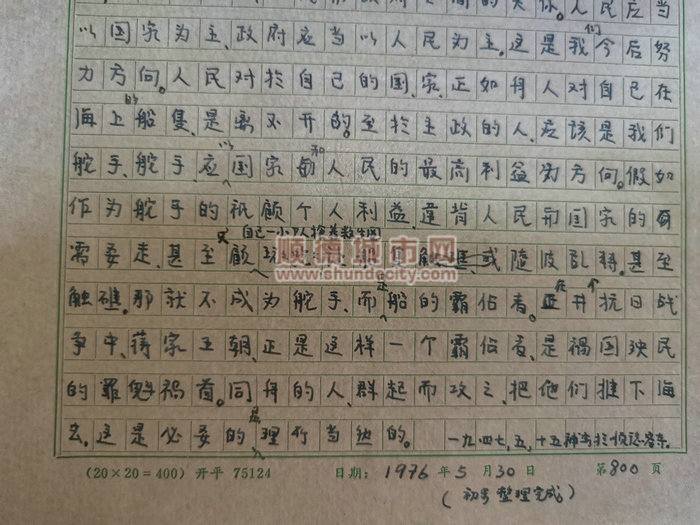 人民应当
以国家为主、政府应当以人民为主。这是我们今后努
力方向。人民对于自己的国家、正如舟人对自己在
海上的船隻、是离不开的。至于主政的人、应该是我们
舵手、舵手应以国家和人民的最高利益为方向。假如
作为舵手的祇顾个人利益、违背人民和国家的
需要走、甚至只顾自己一小 或随波乱转。甚至
触礁。那就不成为舵手、而是船的霸佔者。在 抗日战
争中、蒋家王朝、正是这样一个霸佔者、是祸国殃民
的罪魁祸首。同舟的人、群起而攻之、把他们推下海
去。这是必要的是理所当然的。 一九四七,五,十五
(20×20=400) 开平 75124 日期: 1976 年 5 月 30 日 第 800 页
(初步整理完成)
顺德城市网
www.shundecity.com